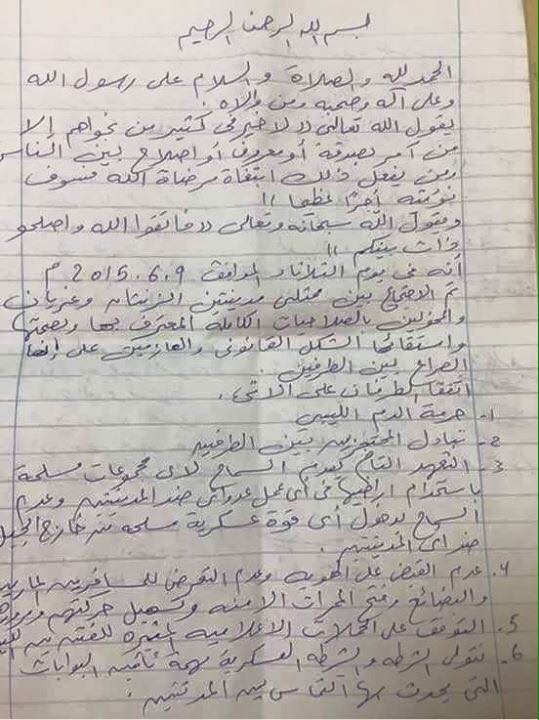 بسم الله الرحمن الرحيم
الحمد لله والصلاة والسلام على رسول الله
وعلى آله وصحبه ومن والاه.
يقول الله تعالى (( لا خير في كثير من نجواهم إلا
من أمر بصدقة أو معروف أو اصلاح بين الناس
ومن يفعل ذلك ابتغاء مرضاة الله فسوف
نؤتيه أجرا عظيما ))
ويقول الله سبحانه وتعالى (( فاتقوا الله واصلحو
ذات بينكم ))
أنه في يوم الثلاثاء الموافق 2015.6.9 م
تم الاجتماع بين ممثلي مدينتين الزنتان وغريان
والمخولين بالصلاحيات الكاملة المعترف بها وبصحتها
واستيفائها الشكل القانوني والعازمين على إنهاء
الصراع بين الطرفين.
اتفقا الطرفان على الآتي:
1- حرمة الدم الليبي
2- تبادل المحتجزين بين الطرفين
3- التعهد التام بعدم السماح لأي مجموعات مسلحة
باستخدام اراضيها في أي عمل عدواني ضد المدينتين وعدم
السماح بدخول أي قوة عسكرية مسلحة من خارج الجبل
ضد اي المدينتين.
4. عدم القبض على الهوية وعدم التعرض للمسافرين المارين
والبضائع وفتح الممرات الآمنة وتسهيل حركتهم
5. التوقف على الحملات الاعلامية المثيرة للفتنة بين
6. تتولى الشرطة والشرطة العسكرية مهمة تأمين البوابات
التي يحدث بها التماس بين المدينتين.